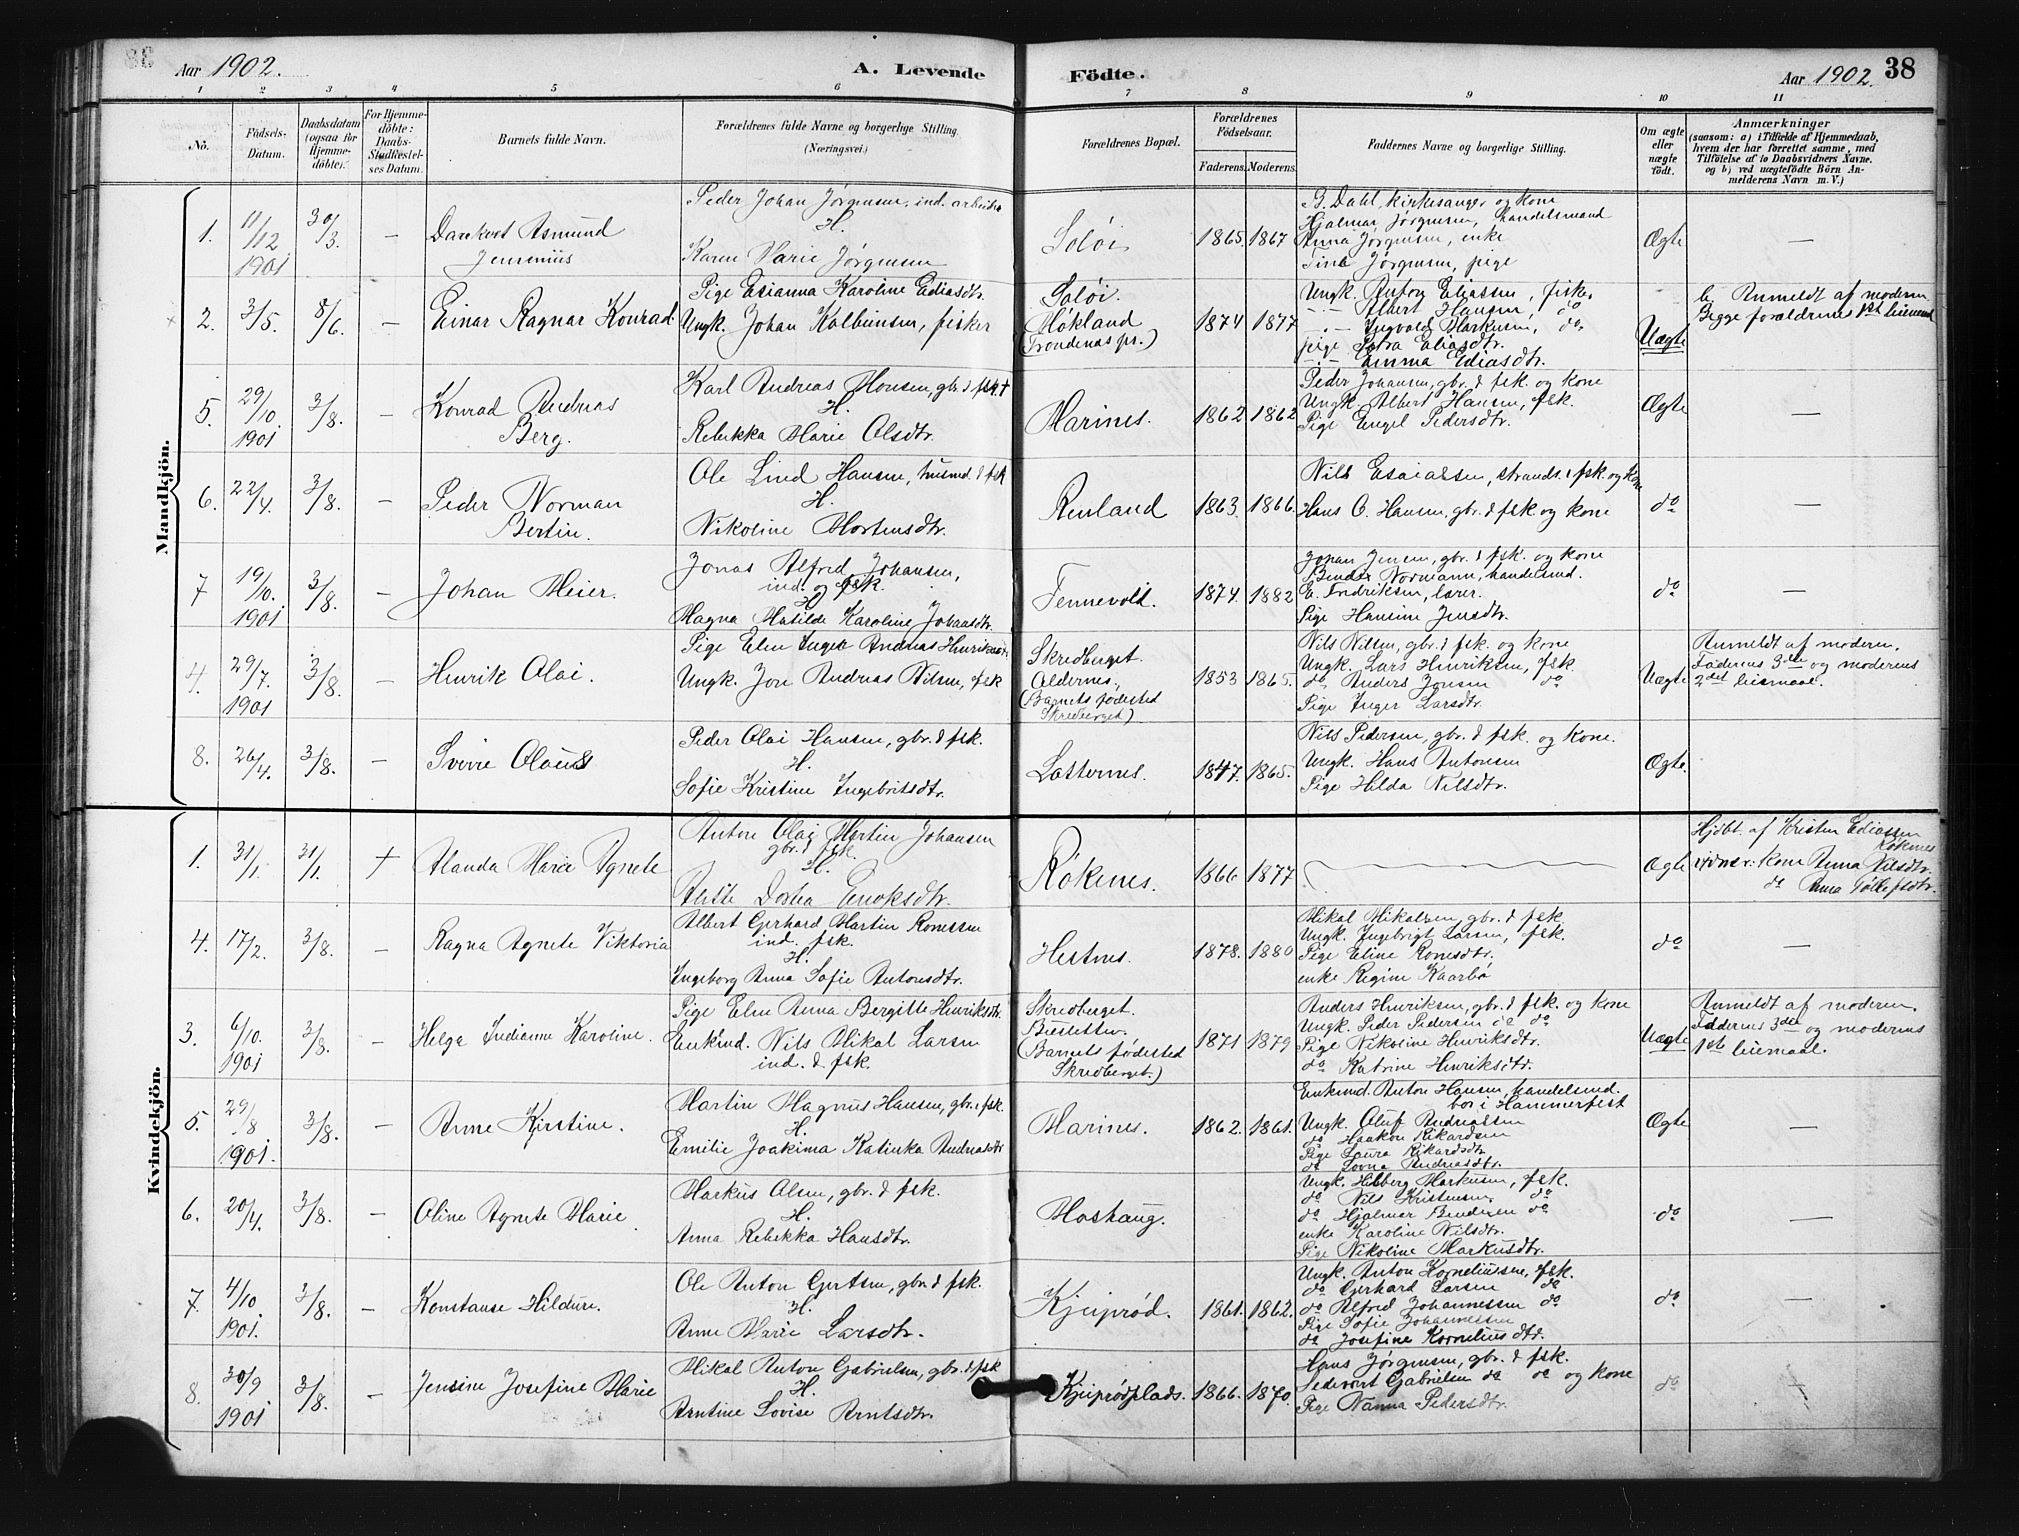 Aar 1902.
A. Levende
Födte.
Aar 1902.
38
1 2 3 4 5 6 7 8 9 10 11
No.
Födsels-
Datum.
Daabsdatum
(ogsaa for
Hjemme-
döbte).
For Hjemme-
döbte:
Daabs-
Stadfæstel-
ses Datum.
Barnets fulde Navn.
Forældrenes fulde Navne og borgerlige Stilling.
(Næringsvei.)
Forældrenes Bopæl.
Forældrenes
Födselsaar.
Faderens. Moderens.
Faddernes Navne og borgerlige Stilling.
Om ægte
eller
uægte
født.
Anmærkninger
(saasom: a) i Tilfælde af Hjemmedaab,
hvem der har forrettet samme, med
Tilföielse af to Daabsvidners Navne.
og b) ved uægtefödte Börn An-
melderens Navn m. V.)
Mandkjön.
1.
11/12
1901
30/3.
—
Dankert Asmund
Jensenius
Peder Johan Jørgensen, ind. arbeider
H.
Karen Marie Jørgensen
Soløi
1865. 1867
G. Dahl, kirkesanger og kone
Hjalmar Jørgensen, handelsmand
Anna Jørgensen, enke
Tina Jørgensen, pige
Ægte
—
2.
3/5.
8/6.
—
Einar Ragnar Konrad.
Pige Esianna Karoline Ediasdtr.
Ungk. Johan Kolbensen, fisker
Soløi.
Høkland
(Trondenas pr.)
1874 1877
Ungk. Anton Eliassen, fisker
-"- Albert Hansen, do
-"- Ingvald Markusen, do.
pige Petra Eliasdtr.
-"- Emma Ediasdtr.
Uægte
b. Anmeldt af moderen
Begge forældrenes 1st leiermaal
5.
29/10.
1901
3/8.
—
Konrad Andreas
Berg.
Karl Andreas Monsen, gbr. & fsk †
H.
Rebekka Marie Olsdtr.
Marines.
1862 1862
Peder Johansen, gbr. & fsk. og kone
Ungk. Albert Hansen, fsk.
Pige Engel Pedersdtr.
Ægte
—
6.
22/4.
3/8.
—
Peder Norman
Bertin.
Ole Lind Hansen, husmd. & fsk
H.
Nikoline Mortensdtr.
Renland
1863. 1866.
Nils Esaiassen, strands. & fsk. og kone
Hans O. Hansen, gbr. & fsk og kone
do
—
7
19/10.
1901
3/8.
—
Johan Meier.
Jonas Alfred Johansen,
ind. og fsk.
H
Magna Matilde Karoline Johansdtr.
Tennevold.
1874. 1882
Johan Jensen, gbr. & fsk. og kone
Bendix Normann, handelsmd.
E. Fredriksen, lærer.
Pige Hansine Jensdtr.
do
—
4.
29/7.
1901
3/8.
—
Henrik Olai.
Pige Elen Inger Andrea Henriksdtr.
Ungk. Jon Andreas Nilsen, fsk
Skredberget.
Oldernes,
(Barnets fødested
Skredberget)
1853 1865.
Nils Nilsen, gbr. & fsk. og kone
Ungk. Lars Henriksen, fsk.
do Anders Jonsen do
Pige Inger Larsdtr.
Uægte
Anmeldt af moderen.
Faderens 3die og moderens
2det leiermaal.
8.
26/4.
3/8.
—
Sverre Olaus
Peder Olai Hansen, gbr. & fsk.
H.
Sofie Kristine Ingebritsdtr.
Lasternes.
1847. 1865.
Nils Pedersen, gbr. & fsk. og kone.
Ungk. Hans Antonsen
Pige Hilda Nilsdtr.
Ægte.
Kvindekjön.
1.
31/1.
31/1.
†
Alanda Marie Agnete
Anton Olai Martin Johansen
gbr. & fsk.
H.
Dortea Enoksdtr.
Røkenes.
1866 1877
Ægte
Hjdbt. af Kristen Ediassen
Røkenes
vidner: kone Anna Nilsdtr.
do Anna Tollefsdtr.
4.
17/2.
3/8.
—
Ragna Agnete Viktoria
Albert Gerhard Martin Ronessen
ind. fsk.
H.
Ingeborg Anna Sofie Antonsdtr.
Hestnes.
1878. 1880
Mikal Mikalsen, gbr. & fsk.
Ungk. Ingebrigt Larsen, fsk.
Pige Eline Ronesdtr.
enke Regine Kaarbø
do
—
3.
6/10.
1901
3/8.
—
Helga Indianna Karoline.
Pige Elen Anna Bergitte Henriksdtr.
Enkmd. Nils Mikal Larsen
ind. & fsk.
Skredberget.
(Barnets fødested
Skredberget.)
1871 1879
Anders Henriksen, gbr. & fsk. og kone
Ungk. Peder Pedersen do do
Pige Nikoline Henriksdtr.
do Katrine Henriksdtr.
Uægte
Anmeldt af moderen.
Faderens 3die og moderens
1ste leiermaal.
5.
29/8
1901.
3/8.
—
Anne Kirstine.
Martin Magnus Hansen, gbr. & fsk.
H.
Emilie Joakima Katinka Andreasdtr
Marines.
1862. 1861.
Enkemd. Anton Hansen, handelsmd.
bor i Hammerfest
Ungk. Oluf Andreassen
do Haakon Rikardsen
Pige Laura Rikardsdtr
do Lovna Andreasdtr.
Ægte
—
6.
20/4.
3/8.
—
Oline Agnete Marie
Markus Olsen, gbr. & fsk.
H.
Anna Rebekka Hansdtr.
Moshaug.
Ungk. Hilberg Markusen, fsk.
do Nils Kristensen do
do Hjalmar Bendixen do
enke Karoline Nilsdtr.
Pige Nikoline Markusdtr.
do
—
7.
4/10.
1901.
3/8.
—
Konstanse Hildure.
Ole Anton Gertsen, gbr. & fsk.
H.
Anne Marie Larsdtr.
Kjeiprød.
1861. 1862.
Ungk. Anton Korneliussen, fsk.
do Gerhard Larsen do
do Alfred Johannessen do
Pige Sofie Johannessen
do Josefine Kornelius dtr.
do
—
8
30/9
1901
3/8.
—
Jensine Josefine Marie
Mikal Anton Gabrielsen, gbr. & fsk
H.
Arntine Lovise Arntsdtr.
Kjeiprødplads.
1866. 1870.
Hans Jørgensen, gbr. & fsk.
Gabrielsen do do og kone
Pige Nanna Pedersdtr.
do